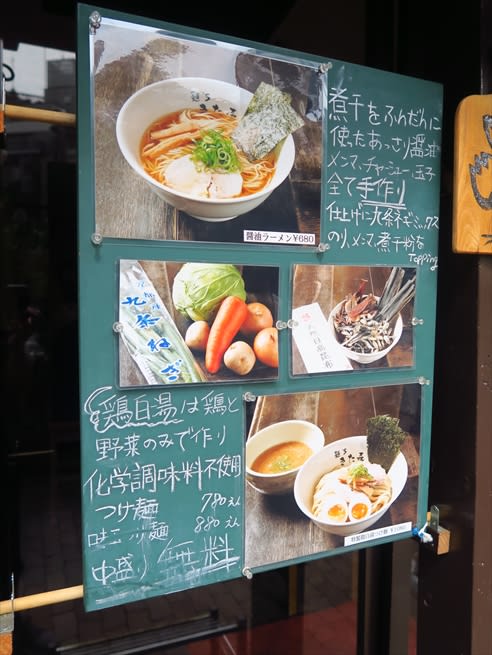 煮干をふんだんに
使ったあっさり醤油
メンマ、チャーシュー、玉子
全て手作り
仕上げに九条ネギミックス
のり、メンマ、煮干粉を
Topping
醤油ラーメン ¥680
九条ねぎ
鶏白湯は鶏と
野菜のみで作り
化学調味料不使用
つけ麺 780えん
味玉つけ麺 880えん
中盛り無料
特製鶏白湯つけ麺